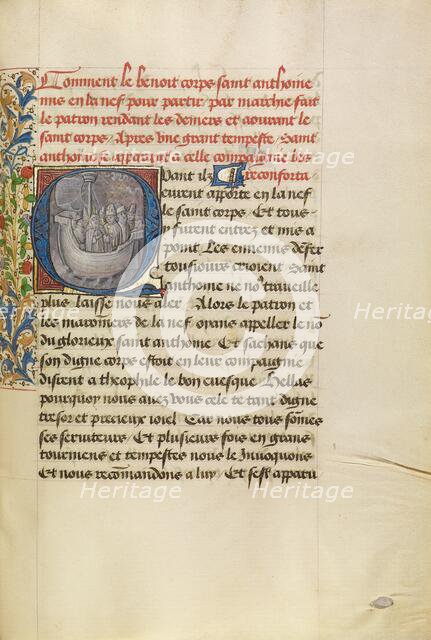 Comment le benoit corps saint anthoine
mis en la nef pour partir par marchie fait
le patron rendant les deniers et aourant le
saint corps. Apres vne grant tempeste. Saint
anthoine se apparant a celle compaignie les
reconforta
Vant ilz
eurent apporte en la nef
le saint corps. Et tous
y furent entrez et mis a
point. Les ennemis d'efer
tousiours crioient Saint
anthoine ne no9 traueille
plus laisse nous aler. Alors le patron et
les maronniers de la nef oyans appeller le no
du glorieux saint anthoine Et sachans que
son digne corps estoit en leur compaignie
disrent a theophile le bon euesque Hellas
pourquoy nous auez vous cele te tant digne
tresor et precieux ioiel Car nous tous somes
ses seruiteurs Et plusieurs fois en grans
tourmens et tempestes nous le Inuoquons
Et nous recomandons a luy. Et sest apparu
Heritage
Heritage
Heritage
Heritage
Heritage
Heritage